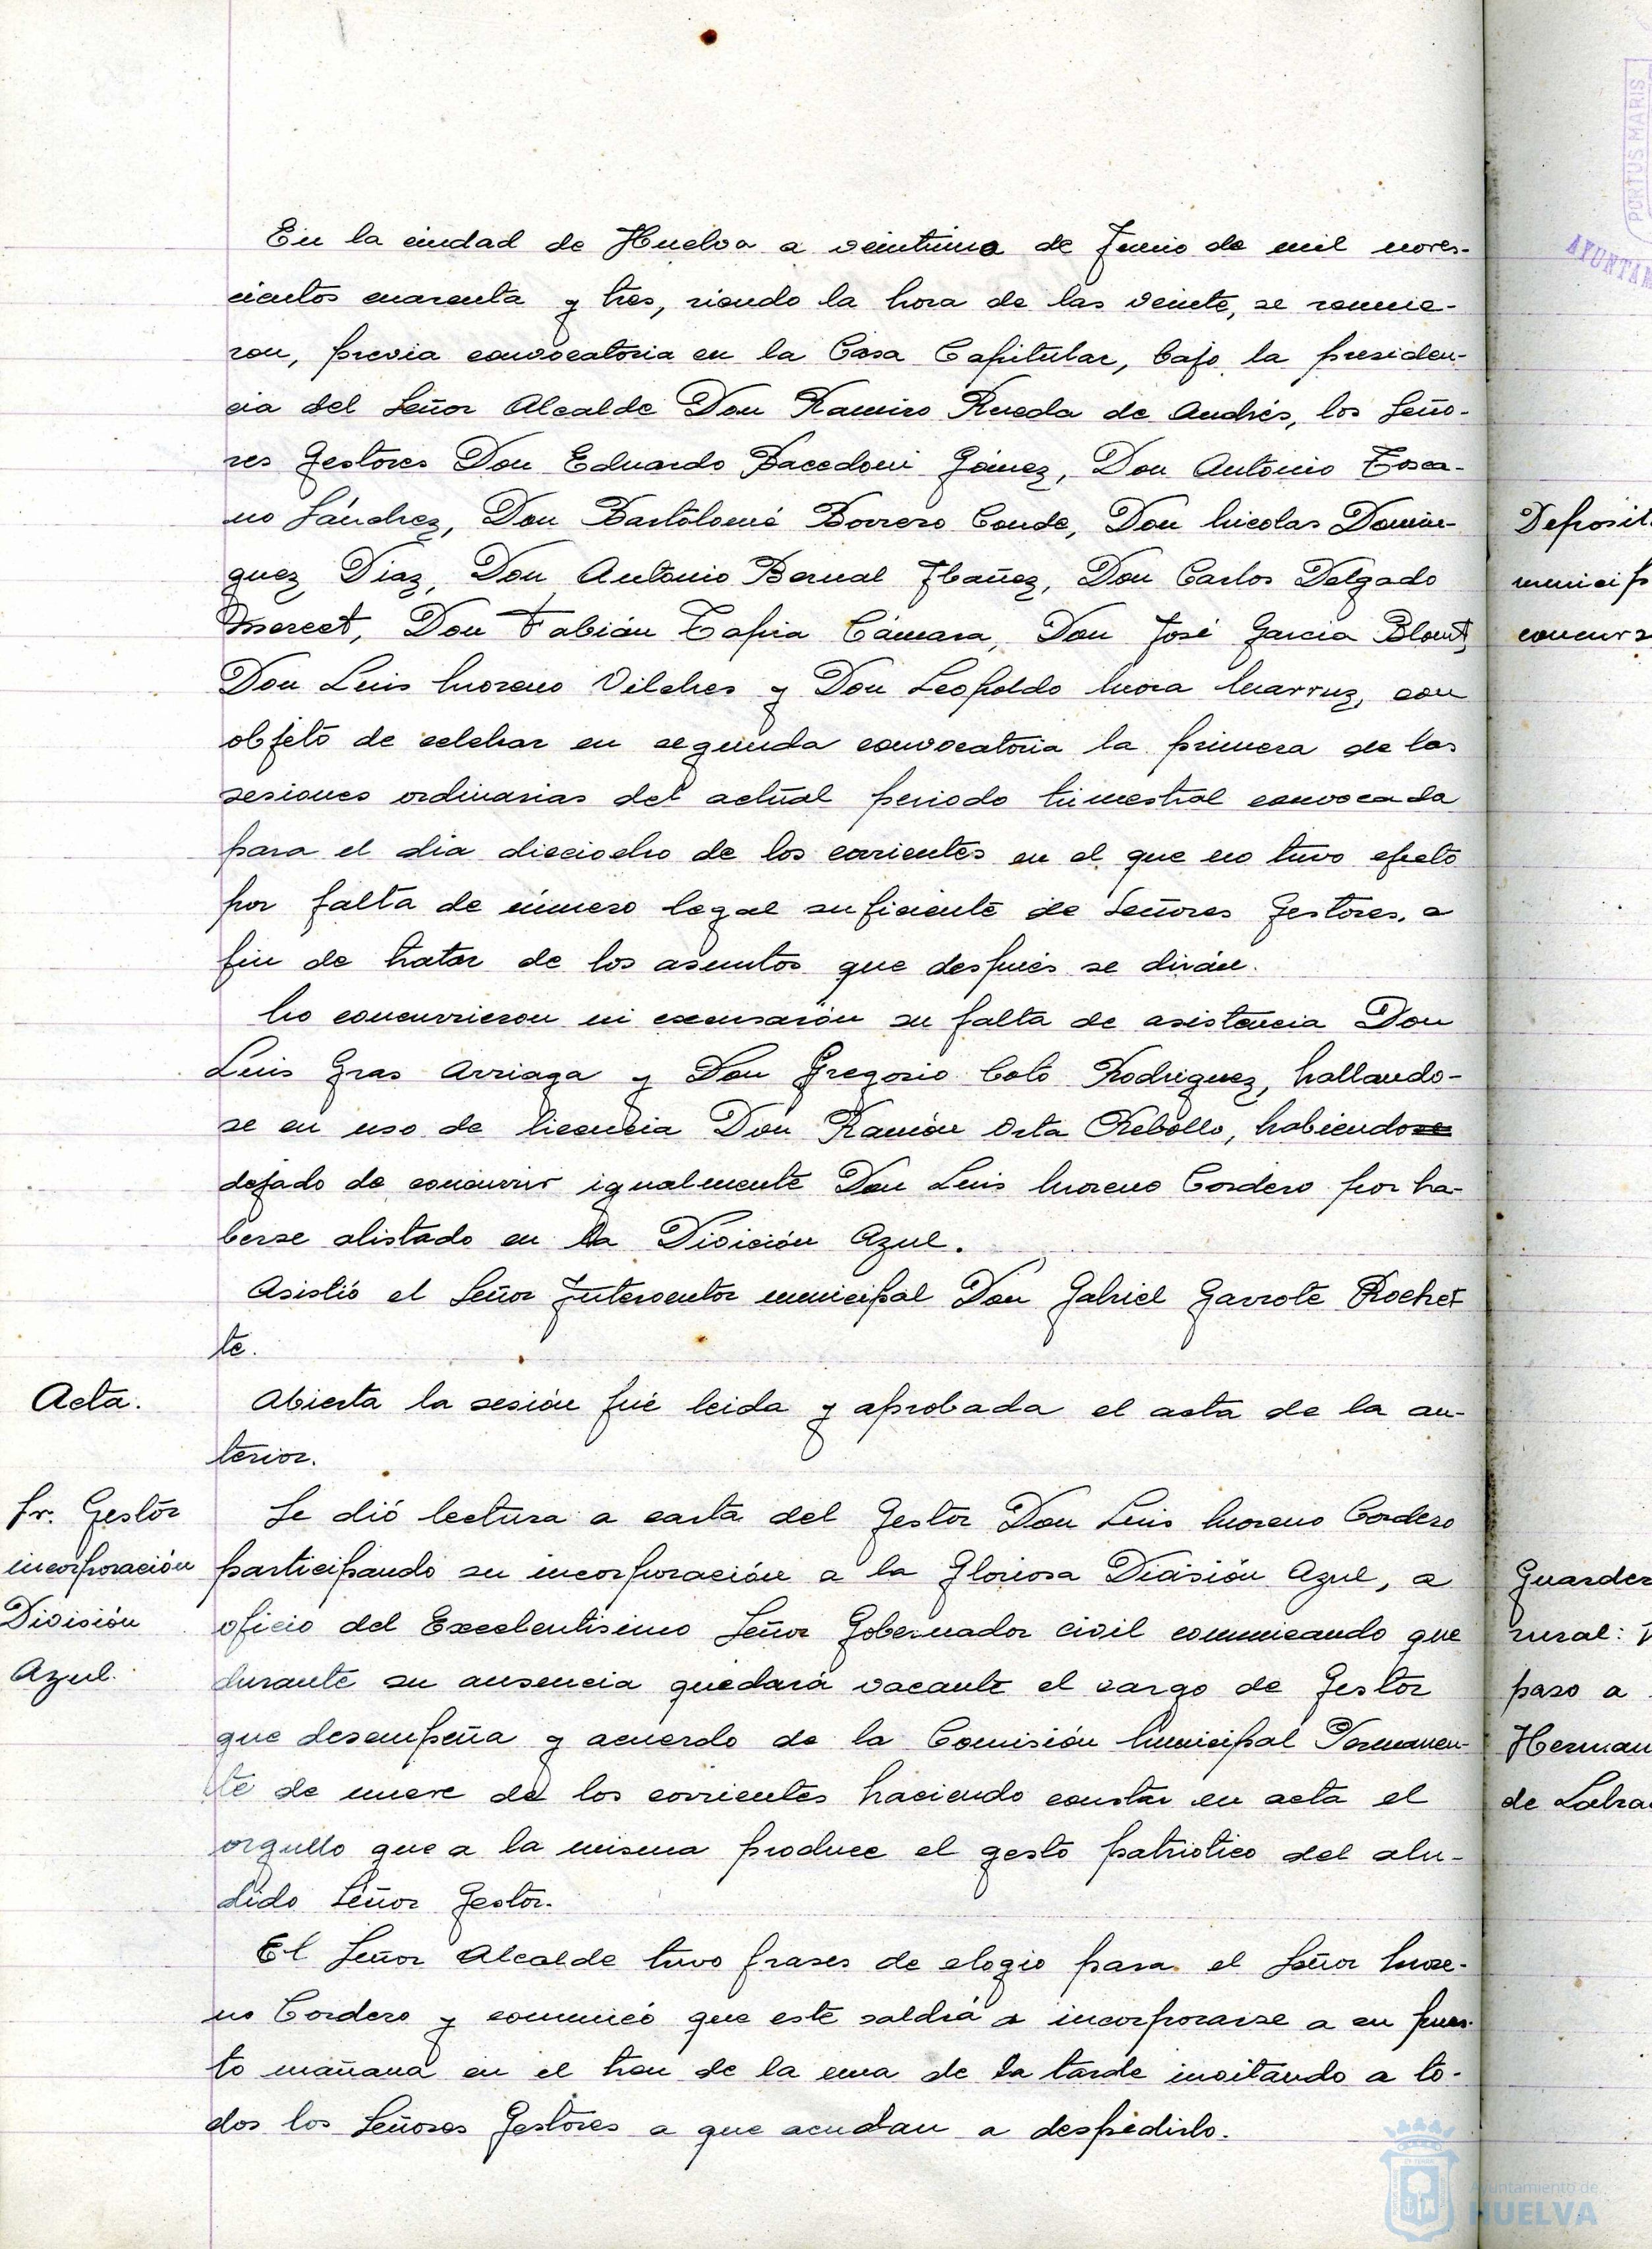 En la ciudad de Huelva a veintiuno de Junio de mil noves-
cientos cuarenta y tres, siendo la hora de las veinte, se reunie-
ron, previa convocatoria en la Casa Capitular, bajo la presiden-
cia del Señor Alcalde Don Ramiro Rueda de Andrés, los Seño-
res Gestores Don Eduardo Bacedoni Gómez, Don Antonio Tosca-
no Sánchez, Don Bartolomé Borrero Conde, Don Nicolas Domin-
guez Diaz, Don Antonio Bernal Ibañez, Don Carlos Delgado
Mercet, Don Fabián Tapia Cámara, Don José Garcia Blount,
Don Luis Moreno Vilches y Don Leopoldo Mora Marruz, con
objeto de celebrar en segunda convocatoria la primera de las
sesiones ordinarias del actual periodo trimestral convocada
para el dia dieciocho de los corrientes en el que no tuvo efecto
por falta de número legal suficiente de Señores Gestores, a
fin de tratar de los asuntos que después se dirán.
No concurrieron ni excusarón su falta de asistencia Don
Luis Gras Arriaga y Don Gregorio Coto Rodriguez, hallando-
se en uso de licencia Don Ramón Orta Rebollo, habiendose
dejado de concurrir igualmente Don Luis Moreno Cordero por ha-
berse alistado en la División Azul.
Asistió el Señor Interventor municipal Don Gabriel Garrote Rochet-
te.
Acta.
Abierta la sesión fué leida y aprobada el acta de la an-
terior.
Sr. Gestor
incorporación
División
Azul.
Se dió lectura a carta del Gestor Don Luis Moreno Cordero
participando su incorporación a la Gloriosa División Azul, a
oficio del Excelentisimo Señor Gobernador civil comunicando que
durante su ausencia quedará vacante el cargo de Gestor
que desempeña y acuerdo de la Comisión Municipal Permanen-
te de nueve de los corrientes haciendo constar en acta el
orgullo que a la misma produce el gesto patriotico del alu-
dido Señor Gestor.
El Señor Alcalde tuvo frases de elogio para el Señor More-
no Cordero y comunicó que este saldrá a incorporarse a su pues-
to mañana en el tren de la una de la tarde invitando a to-
dos los Señores Gestores a que acudan a despedirlo.
PORTUS MARIS
AYUNTAM
Deposit
municip
concurs
Guarder
rural:
paso a
Herman
de Labra
Ayuntamiento de
HUELVA